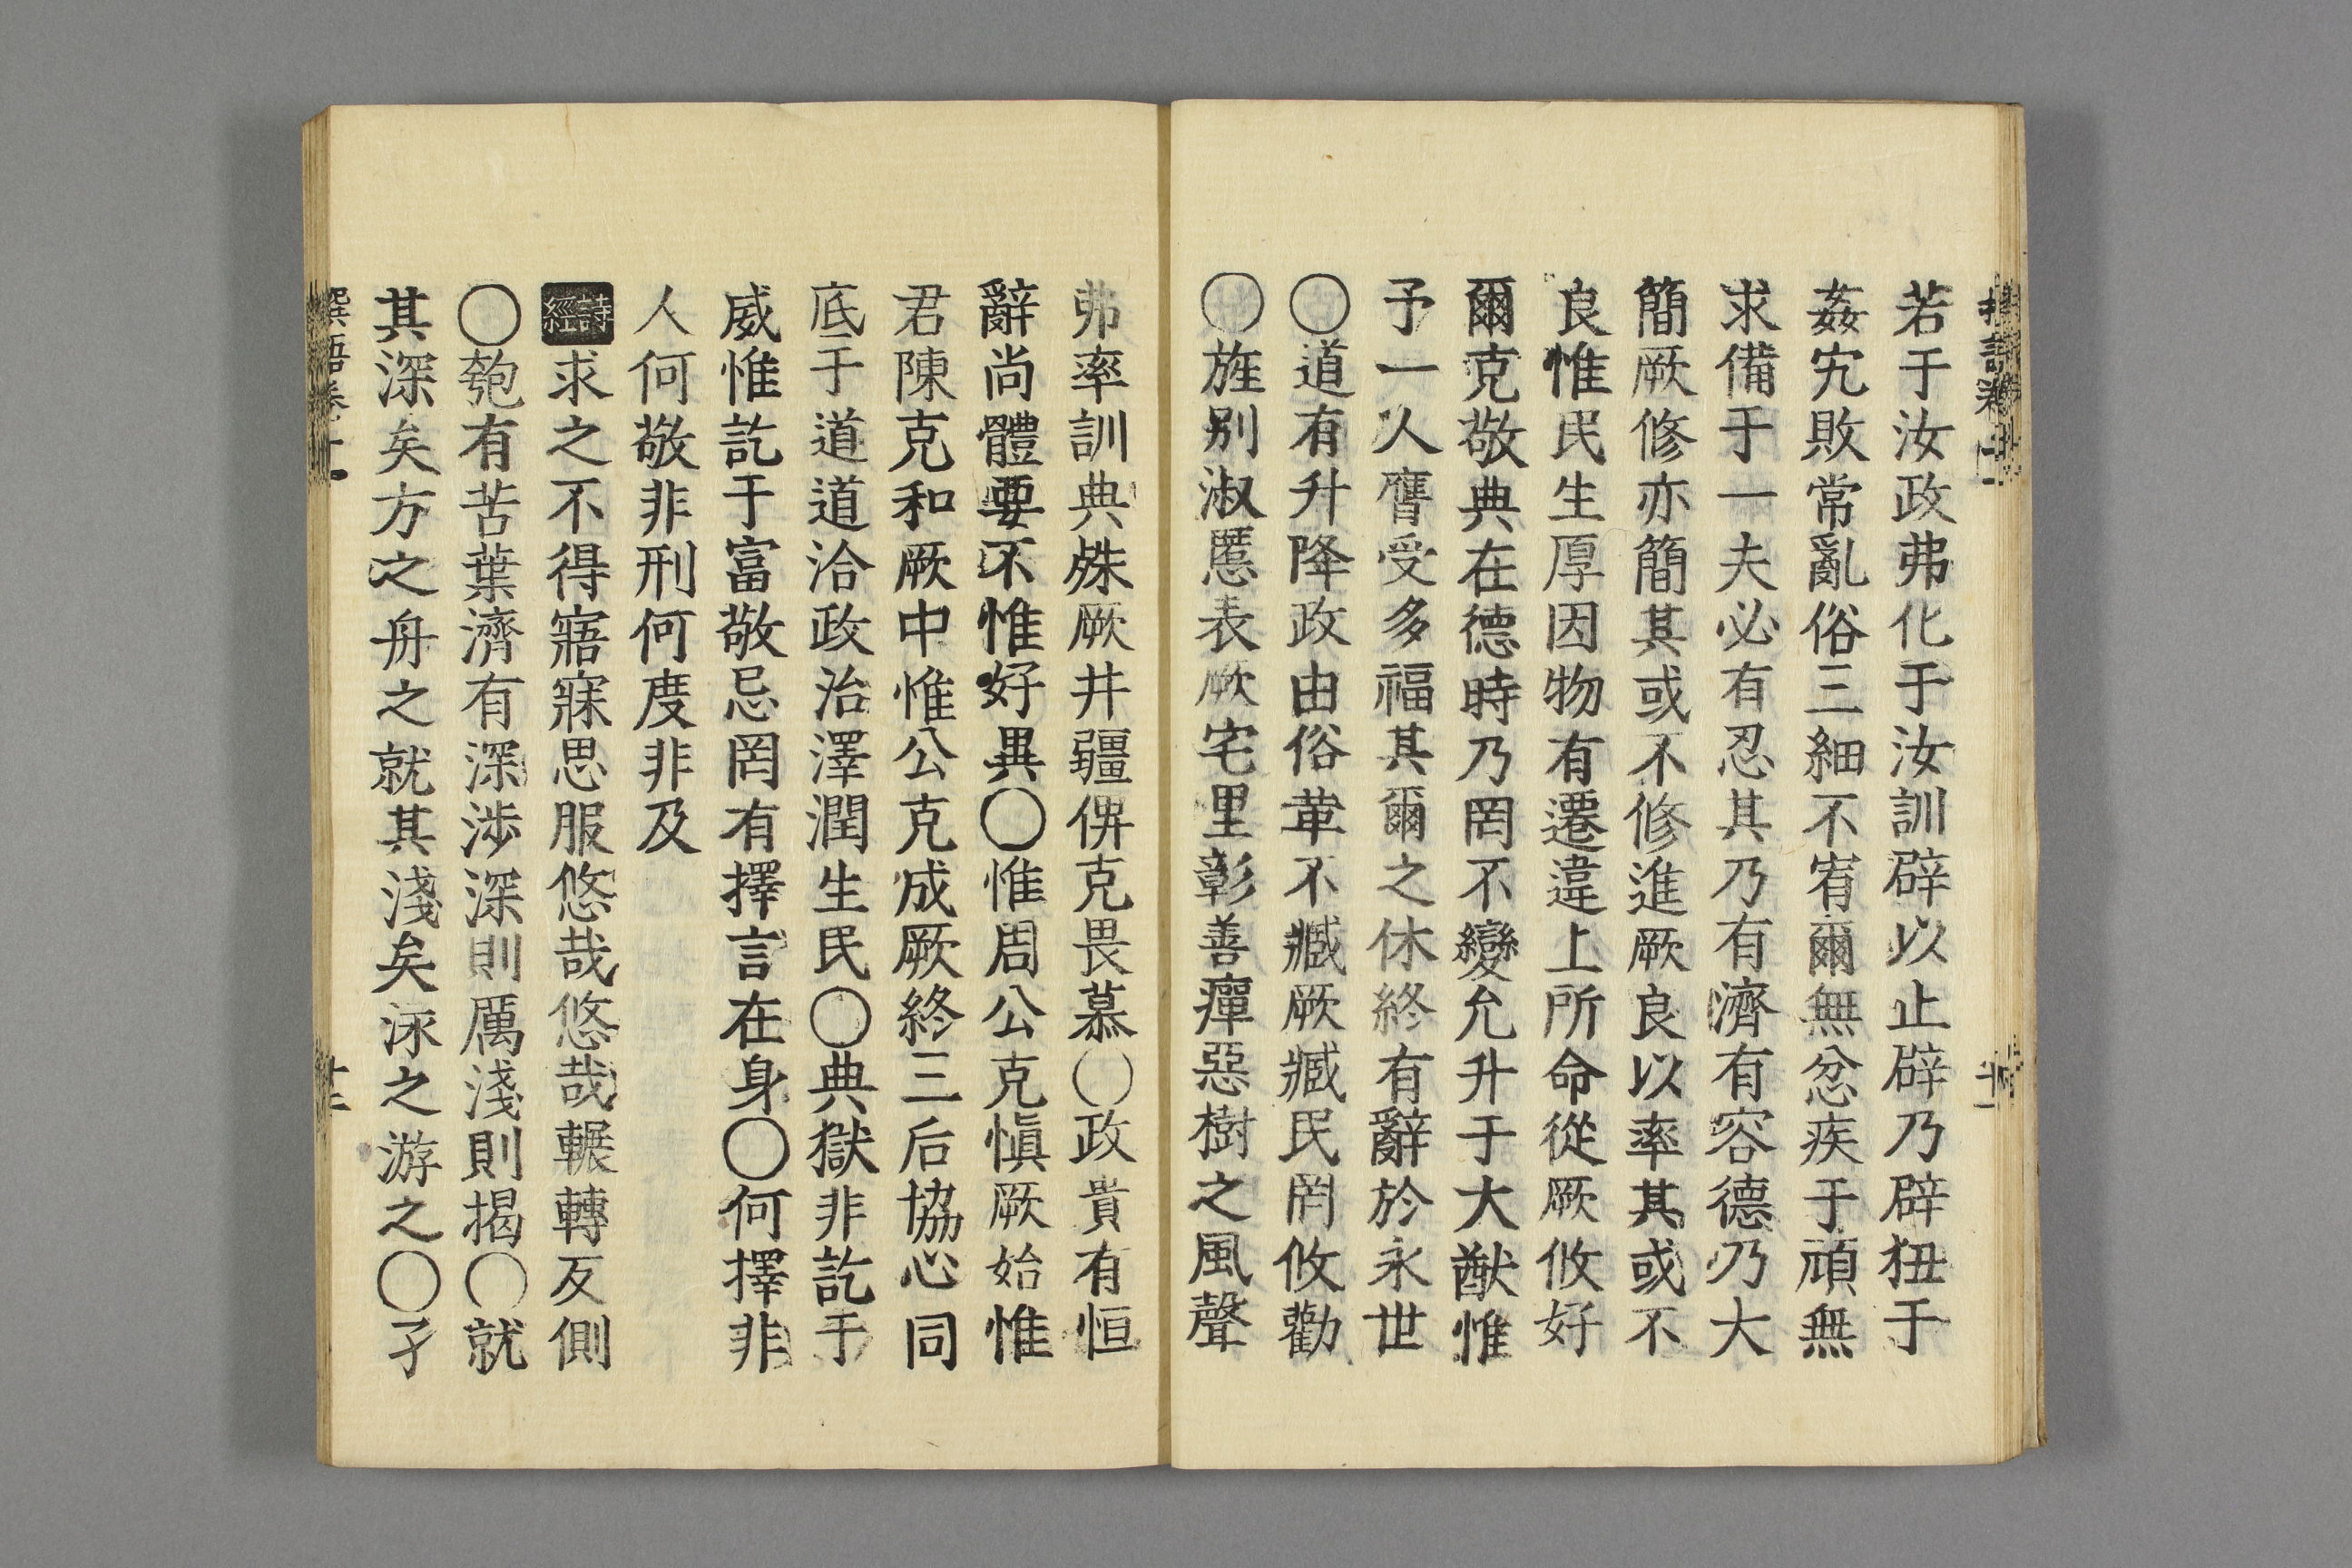 若于汝政弗化于汝訓辟以止辟乃辟狃于
姦宄敗常亂俗三細不宥爾無忿疾于頑無
求備于一夫必有忍其乃有濟有容德乃大
簡厥修亦簡其或不修進厥良以率其或不
良惟民生厚因物有遷違上所命從厥攸好
爾克敬典在德時乃罔不變允升于大猷惟
予一人膺受多福其爾之休終有辭於永世
〇道有升降政由俗革不臧厥臧民罔攸勸
〇旌別淑慝表厥宅里彰善癉惡樹之風聲
弗率訓典殊厥井疆俾克畏慕〇政貴有恒
辭尚體要不惟好異〇惟周公克愼厥始惟
君陳克和厥中惟公克成厥終三后協心同
底于道道洽政治澤潤生民〇典獄非訖于
威惟訖于富敬忌罔有擇言在身〇何擇非
人何敬非刑何度非及
詩經求之不得寤寐思服悠哉悠哉輾轉反側
〇匏有苦葉濟有深涉深則厲淺則揭〇就
其深矣方之舟之就其淺矣泳之游之〇孑